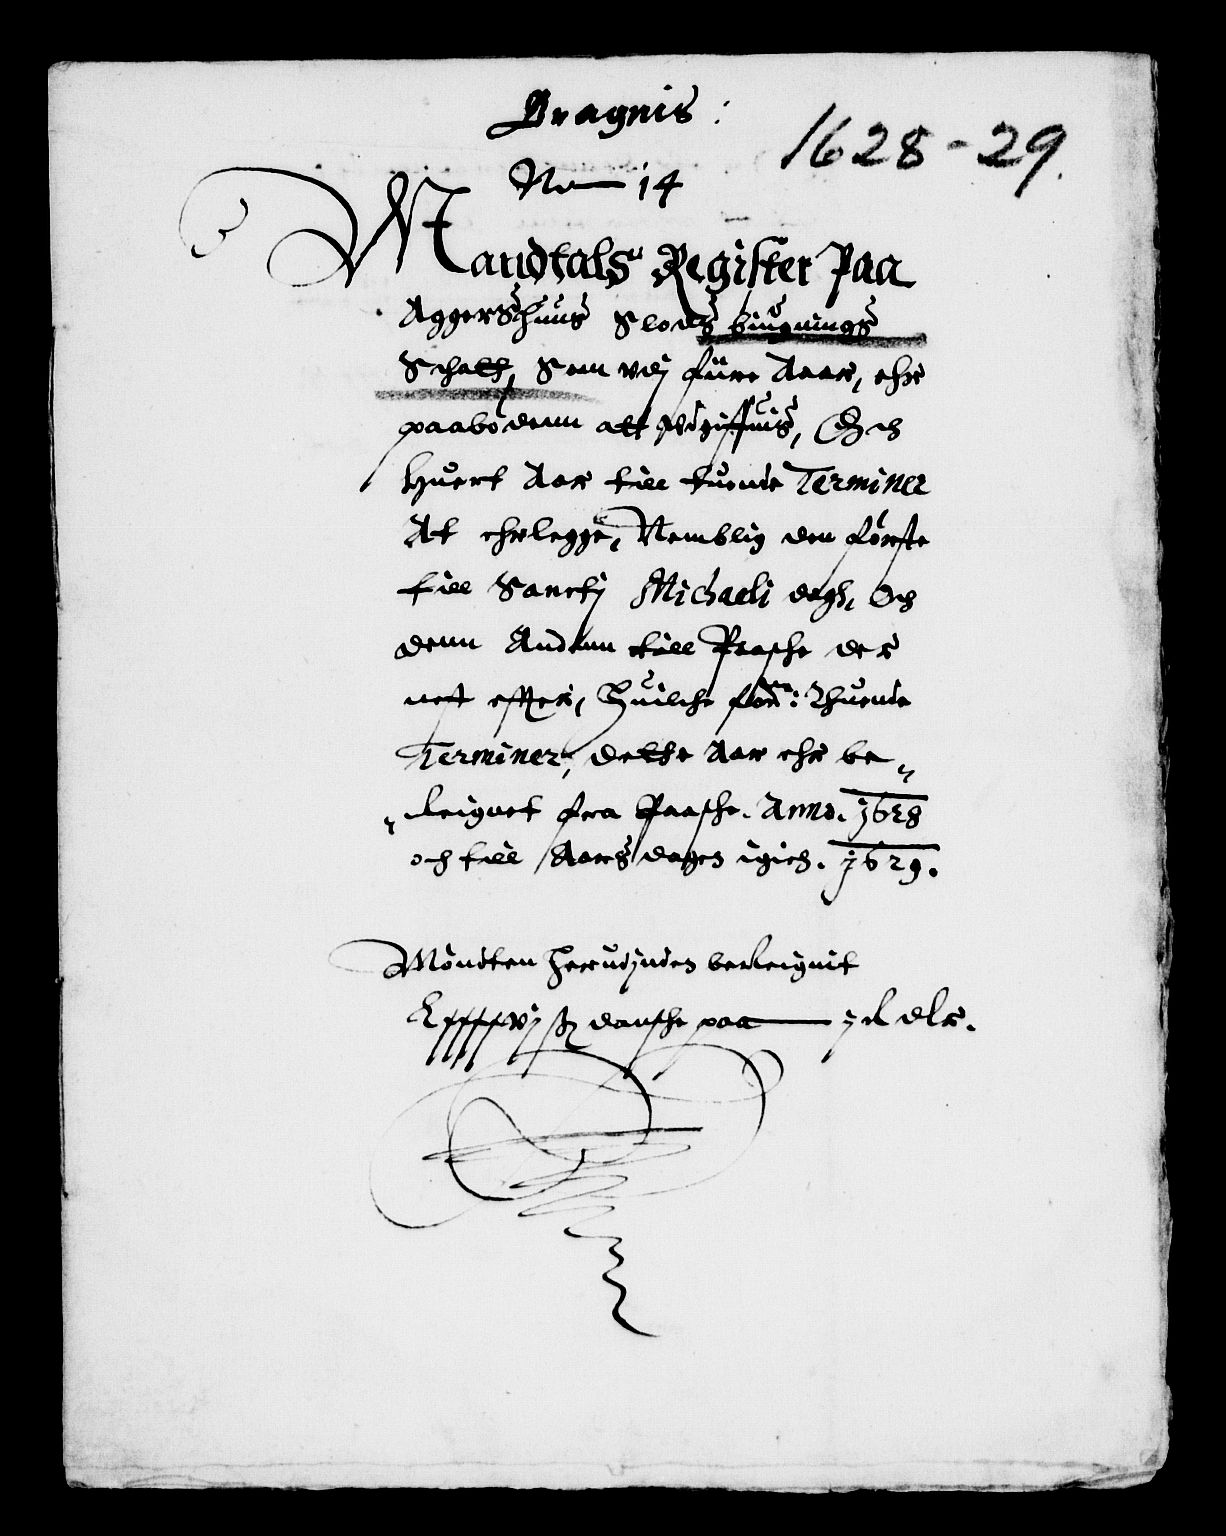 Bragnis:
1628-29.
No 14
Mandtals Register Paa
Aggershuus Slods biugnings
Schatt, Som vdj fiire Aaar, ehr
paabodenn att vdgiffuis, Och
Huert Aar till tuende Terminer
At ehrlegge, Nemblig den förste
till Sanctj Michaeli dagh, Och
denn Andenn till Paasche der
nest effter, Huilche for: Thuende
Terminer, dette Aar ehr be„
„reignet fra Paasche. Anno. 1628
och till Aarsdagen igien. 1629.
Mönten herudjnden berreignit
danske paa 1 rl dlr.